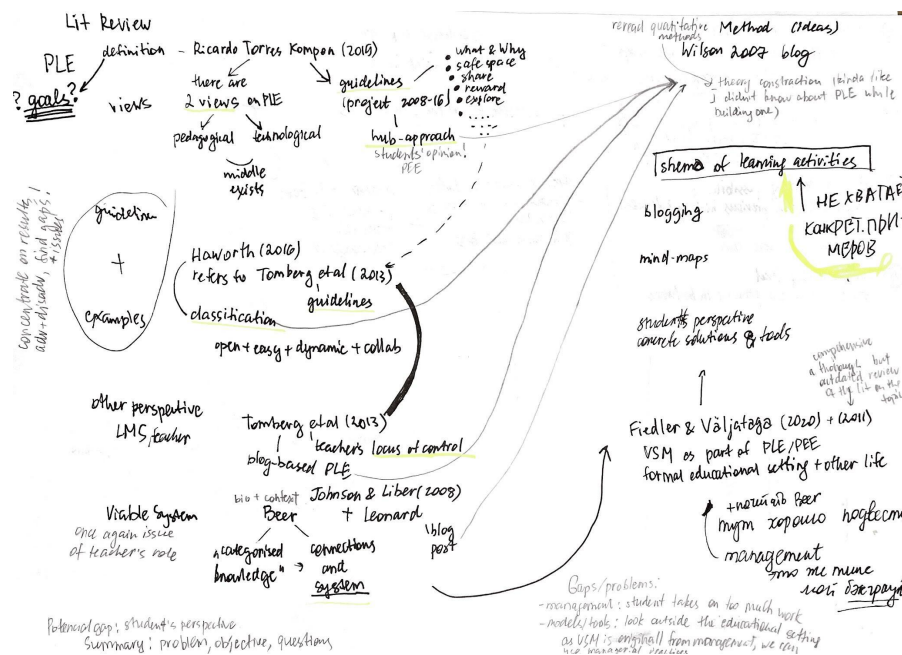 Lit Review
PLE
definition - Ricardo Torres Kompen (2015)
? goals?
views
there are
2 views on PLE
pedagogical
technological
middle
exists
guidelines
(project 2008-16)
hub-approach
students' opinion!
PLE
what & Why
safe space
share
reward
explore
concentrate on results,
adv+disadv, find gaps!
+ issues
guidelines
+
examples
Haworth (2016)
refers to Tomberg et al (2013)
guidelines
classification
open + easy + dynamic + collab
other perspective
LMS, teacher
Tomberg et al (2013)
teacher's locus of control
blog-based PLE
Viable System
once again issue
of teacher's role
bio + context
Beer
Johnson & Liber (2008)
+ Leonard
blog
post
"categorised
knowledge" →
connections
and
system
Potencial gap: student's perspective
Summary: problem, objective, questions
reread qualitative
methods
Method (ideas)
Wilson 2007 blog
theory construction (kinda like
I didn't know about PLE while
building one)
shema of learning activities
НЕ ХВАТАЕ
КОНКРЕТ. ПРИ-
МЕРОВ
blogging
mind-maps
students perspective
concrete solutions & tools
comprehensive
a thorough but
outdated review
of the lit on the
topic
Fiedler & Väljataga (2020) + (2011)
VSM as part of PLE/PEE
formal educational setting + other life
Beer
тут хорошо подвест
management
это же типе
мой бэкграун
Gaps/problems:
- management: student takes on too much work
- models/tools: look outside the educational setting
as VSM is originall from management, we can
use managerial practices